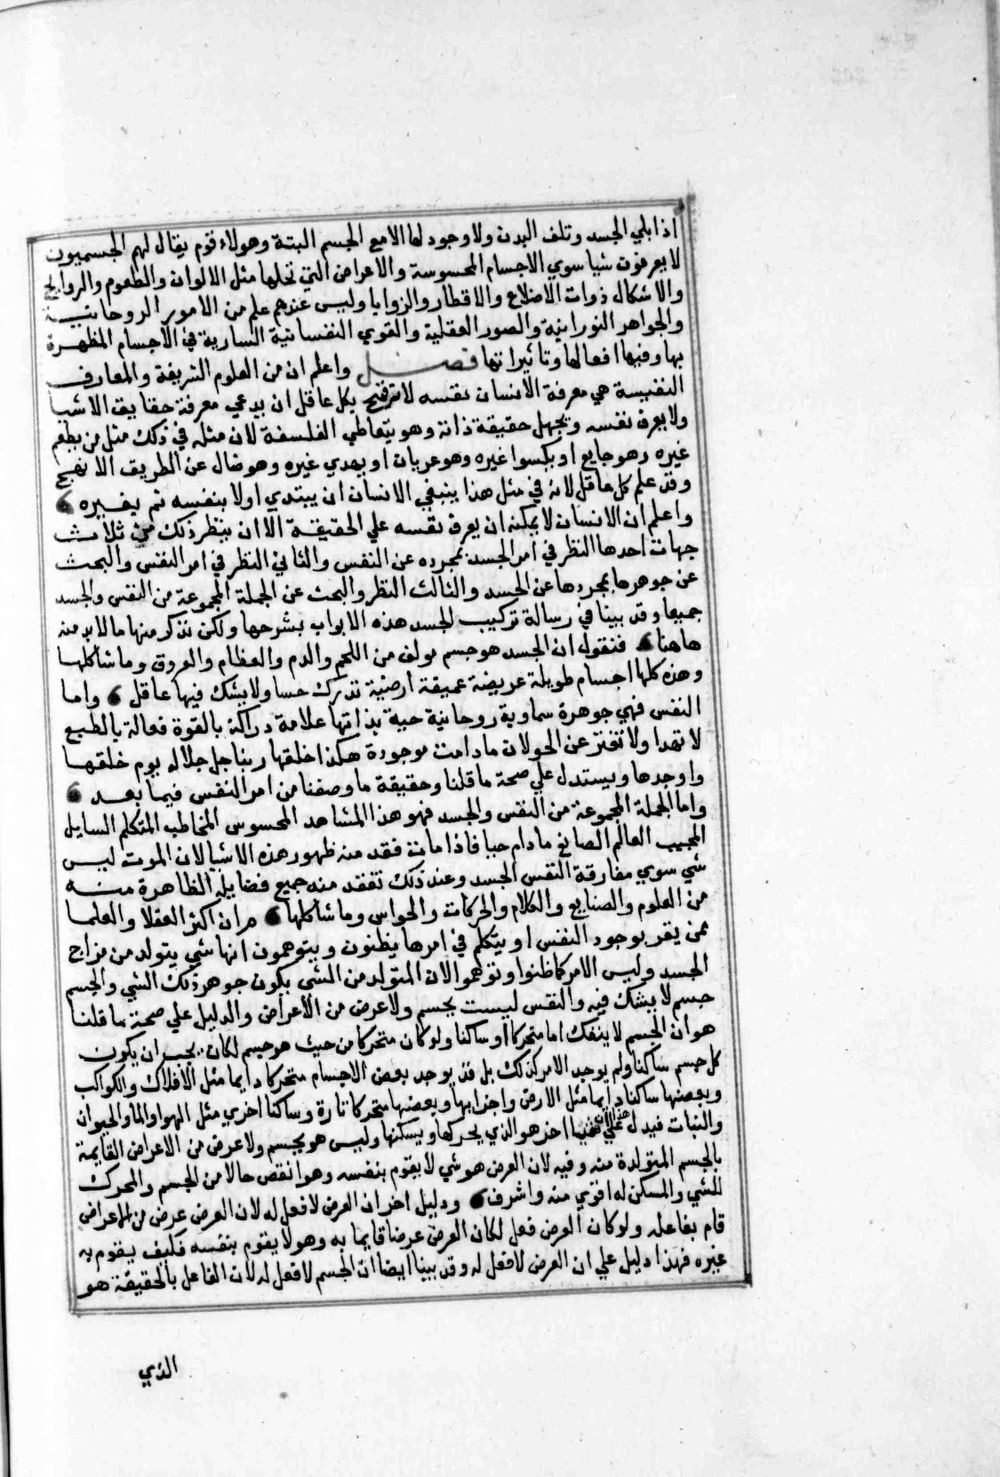 اذا بلي الجسد وتلف البدن ولا وجود لها الا مع الجسم البتة وهولاء قوم يقال لهم الجسميون
لا يعرفون شيا سوي الاجسام المحسوسة والاعراض التي تحلها مثل الالوان والطعوم والروايح
والاشكال ذوات الاضلاع والاقطار والزوايا وليس عندهم علم من الامور الروحانيـــة
والجواهر النورانية والصور العقلية والقوي النفسانية السارية في الاجسام المظهرة
بها وفيها افعالها وتاثيراتها فصـــل واعلم ان من العلوم الشريفة والمعارف
النفيسة هي معرفة الانسان نفسه لا بكل عاقل ان يدعي معرفة حقايق الاشيا
ولا يعرف نفسه ويجهل حقيقة ذاته وهو يتعاطي الفلسفة لان مثله في ذلك مثل من يطعم
غيره وهو جايع او يكسوا غيره وهو عريان او يهدي غيره وهو ضال عن الطريق الانهج
وقد علم كل عاقل لانه في مثل هذا ينبغي الانسان ان يبتدي اولا بنفسه ثم بغيره
واعلم ان الانسان لا يمكنه ان يعرف نفسه علي الحقيقة الا ان ينظر ذلك من ثلاث
جهات احدها النظر في امر الجسد بمجرده عن النفس والثاني النظر في امر النفس والبحث
عن جوهرها بمجردها عن الجسد والثالث النظر والبحث عن الجملة المجموعة من النفس والجسد
جميعا وقد بينا في رسالة تركيب الجسد هذه الابواب بشرحها ولكن نذكر منها ما لا بد منه
هاهنا فنقول ان الجسد هو جسم مولف من اللحم والدم والعظام والعروق وما شاكلها
وهذه كلها اجسام طويلة عريضة عميقة ارضية تدرك حسا ولا يشك فيها عاقل واما
النفس فهي جوهرة سماوية روحانية حية بذاتها علامة دراكة بالقوة فعالة بالطبع
لا تهدا ولا تفتر عن الجولان ما دامت موجودة هكذا خلقها ربنا جل جلاله يوم خلقهــا
واوجدها ويستدل علي صحة ما قلنا وحقيقة ما وصفنا من امر النفس فيما بعـــد
واما الجملة المجموعة من النفس والجسد فهو هذا المشاهد المحسوس المخاطب المتكلم السايل
المجيب العالم الصانع ما دام حيا فاذا مات فقد منه ظهور هذه الاشيا لان الموت ليس
شي سوي مفارقة النفس الجسد وعند ذلك تفقد منه جميع فضايله الظاهرة منــه
من العلوم والصنايع والكلام والحركات والحواس وما شاكلها مران اكثر العقلا والعلما
ممن يقر بوجود النفس او يتكلم في امرها يظنون ويتوهمون انها شي يتولد من مزاج
الجسد وليس الامر كما ظنوا وتوهموا لان المتولد من الشي يكون جوهر ذلك الشي والجسم
جسم لا يشك فيه والنفس ليست بجسم ولا عرض من الاعراض والدليل علي صحة ما قلنا
هو ان الجسم لا ينفك اما متحركا او ساكنا ولو كان متحركا من حيث هو جسم لكان يجب ان يكون
كل جسم ساكنا ولم يوجد الامر كذلك بل قد يوجد بعض الاجسام متحركا دايما مثل الافلاك والكواكب
وبعضها ساكنا دايما مثل الارض واجزايها وبعضها متحركا تارة وساكنا اخري مثل الهوا والما والحيوان
والنبات فيدل علي ان شيا اخر هو الذي يحركها ويسكنها وليس هو بجسم ولا عرض من الاعراض القايمة
بالجسم المتولدة منه وفيه لان العرض هو شي لا يقوم بنفسه وهو انقص حالا من الجسم والمحرك
للشي والمسكن له اقوي منه واشرف ودليل اخر ان العرض لا فعل له لان العرض عرض من الاعراض
قام بفاعله ولو كان العرض فعل لكان العرض عرضا قايما به وهو لا يقوم بنفسه فكيف يقوم به
غيره فهذا دليل علي ان العرض لا فعل له وقد بينا ايضا ان الجسم لا فعل له لان الفاعل بالحقيقة هو
الذي